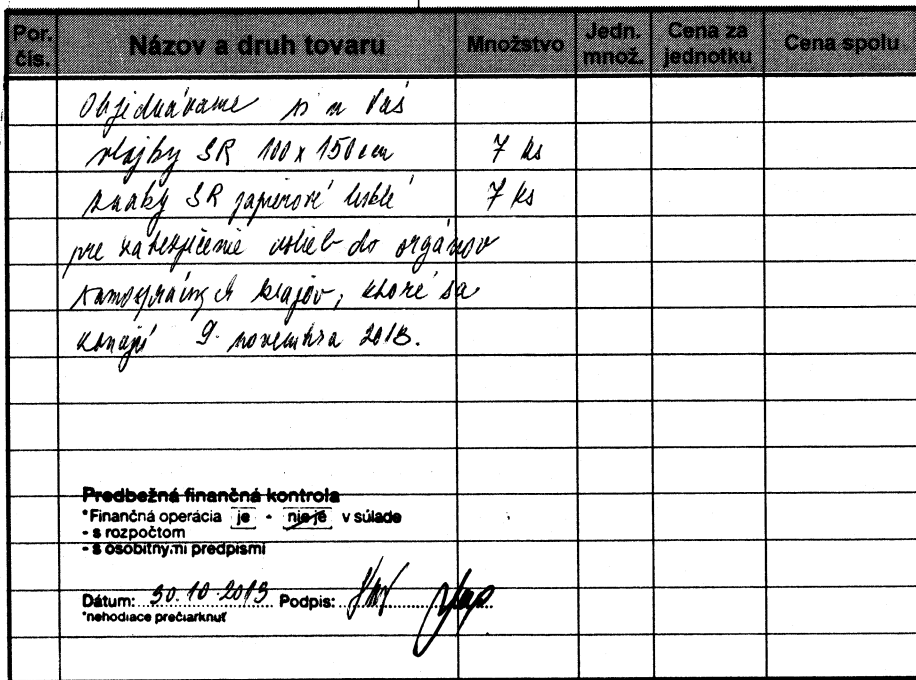 Por. čís. Názov a druh tovaru Množstvo Jedn. množ. Cena za jednotku Cena spolu
Objednávame si u Vás
vlajky SR 100 x 150 cm 7 ks
znaky SR papierové lesklé 7 ks
pre zabezpečenie volieb do orgánov
samosprávnych krajov, ktoré sa
konajú 9. novembra 2013.
Predbežná finančná kontrola
*Finančná operácia je - nie je v súlade
- s rozpočtom
- s osobitnými predpismi
Dátum: 30.10.2013 Podpis:
*nehodiace prečiarknuť